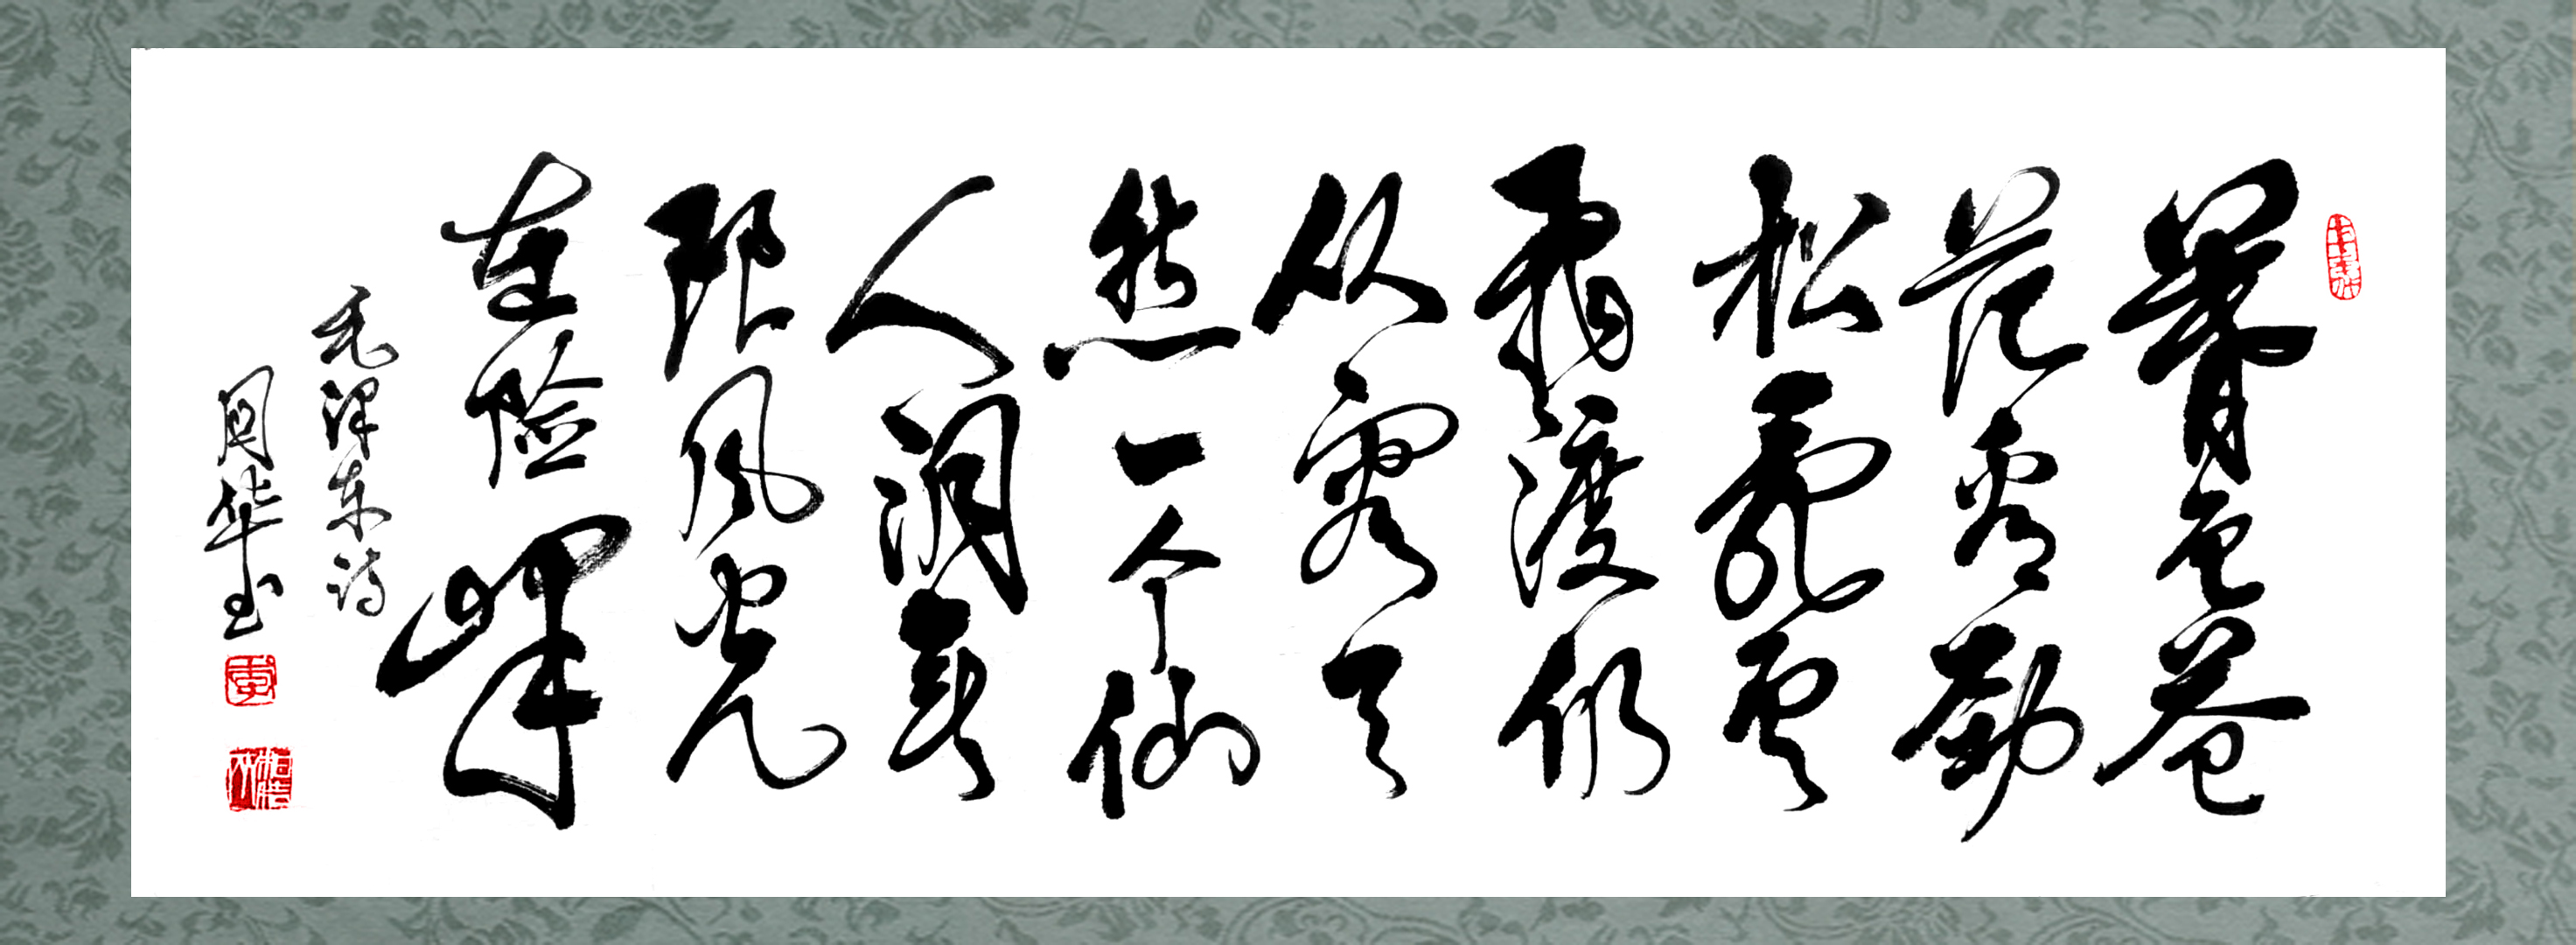 暮色苍
茫看劲
松乱云
飞渡仍
从容天
然一个仙
人洞无
限风光
在险峰
毛泽东诗
国华书